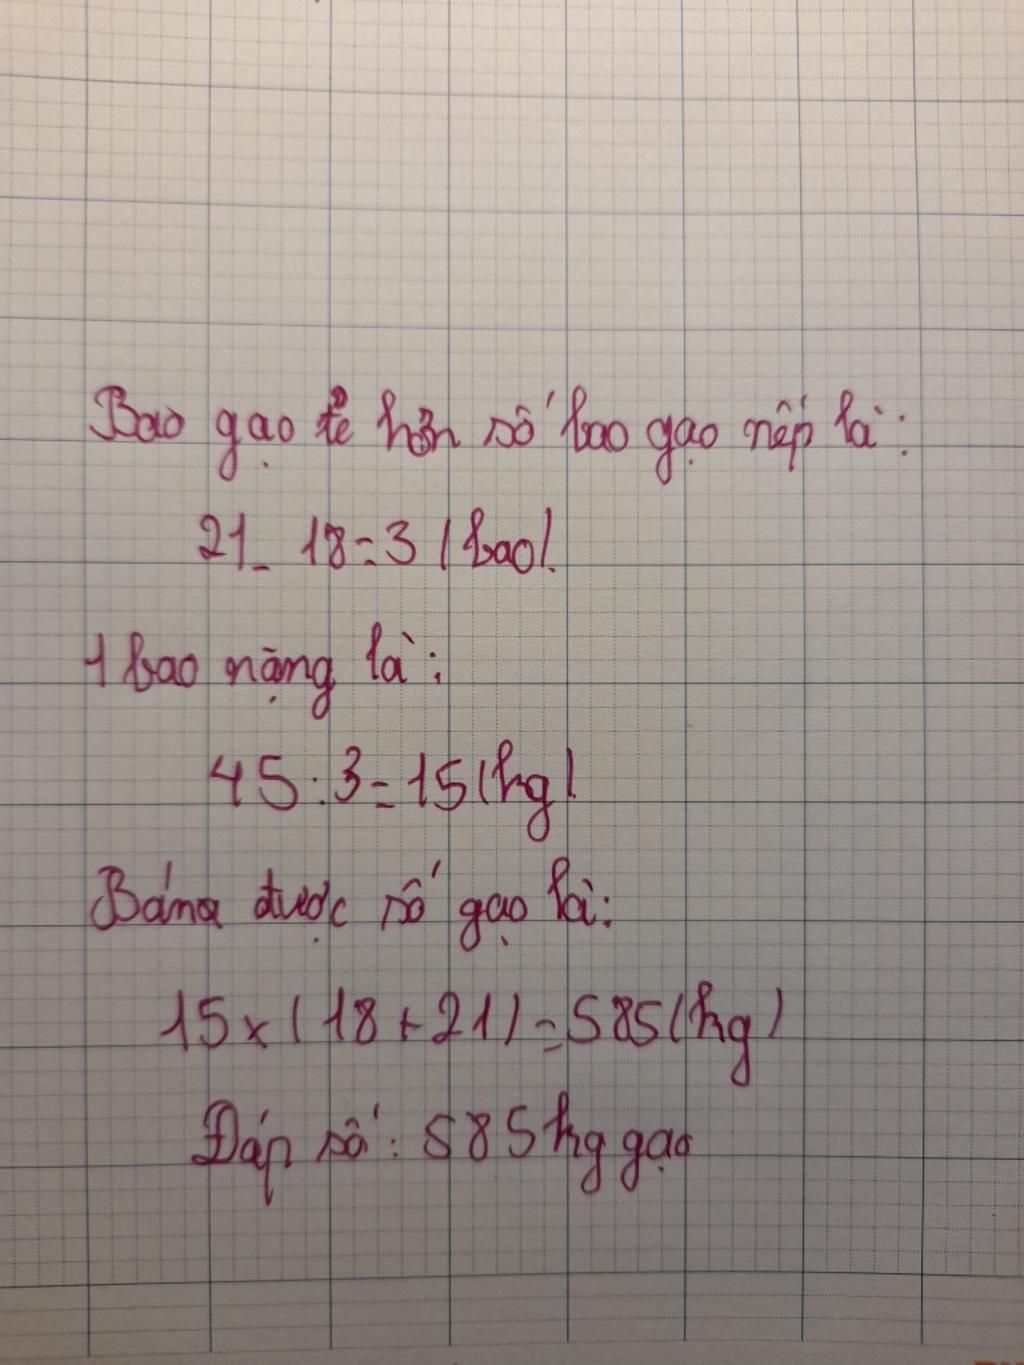 Bao gạo tẻ hơn số bao gạo nếp là:
21 - 18 = 3 (bao).
1 bao nặng là:
45 : 3 = 15 (kg)
Bán được số gạo là:
15 x (18 + 21) = 585 (kg)
Đáp số: 585 kg gạo